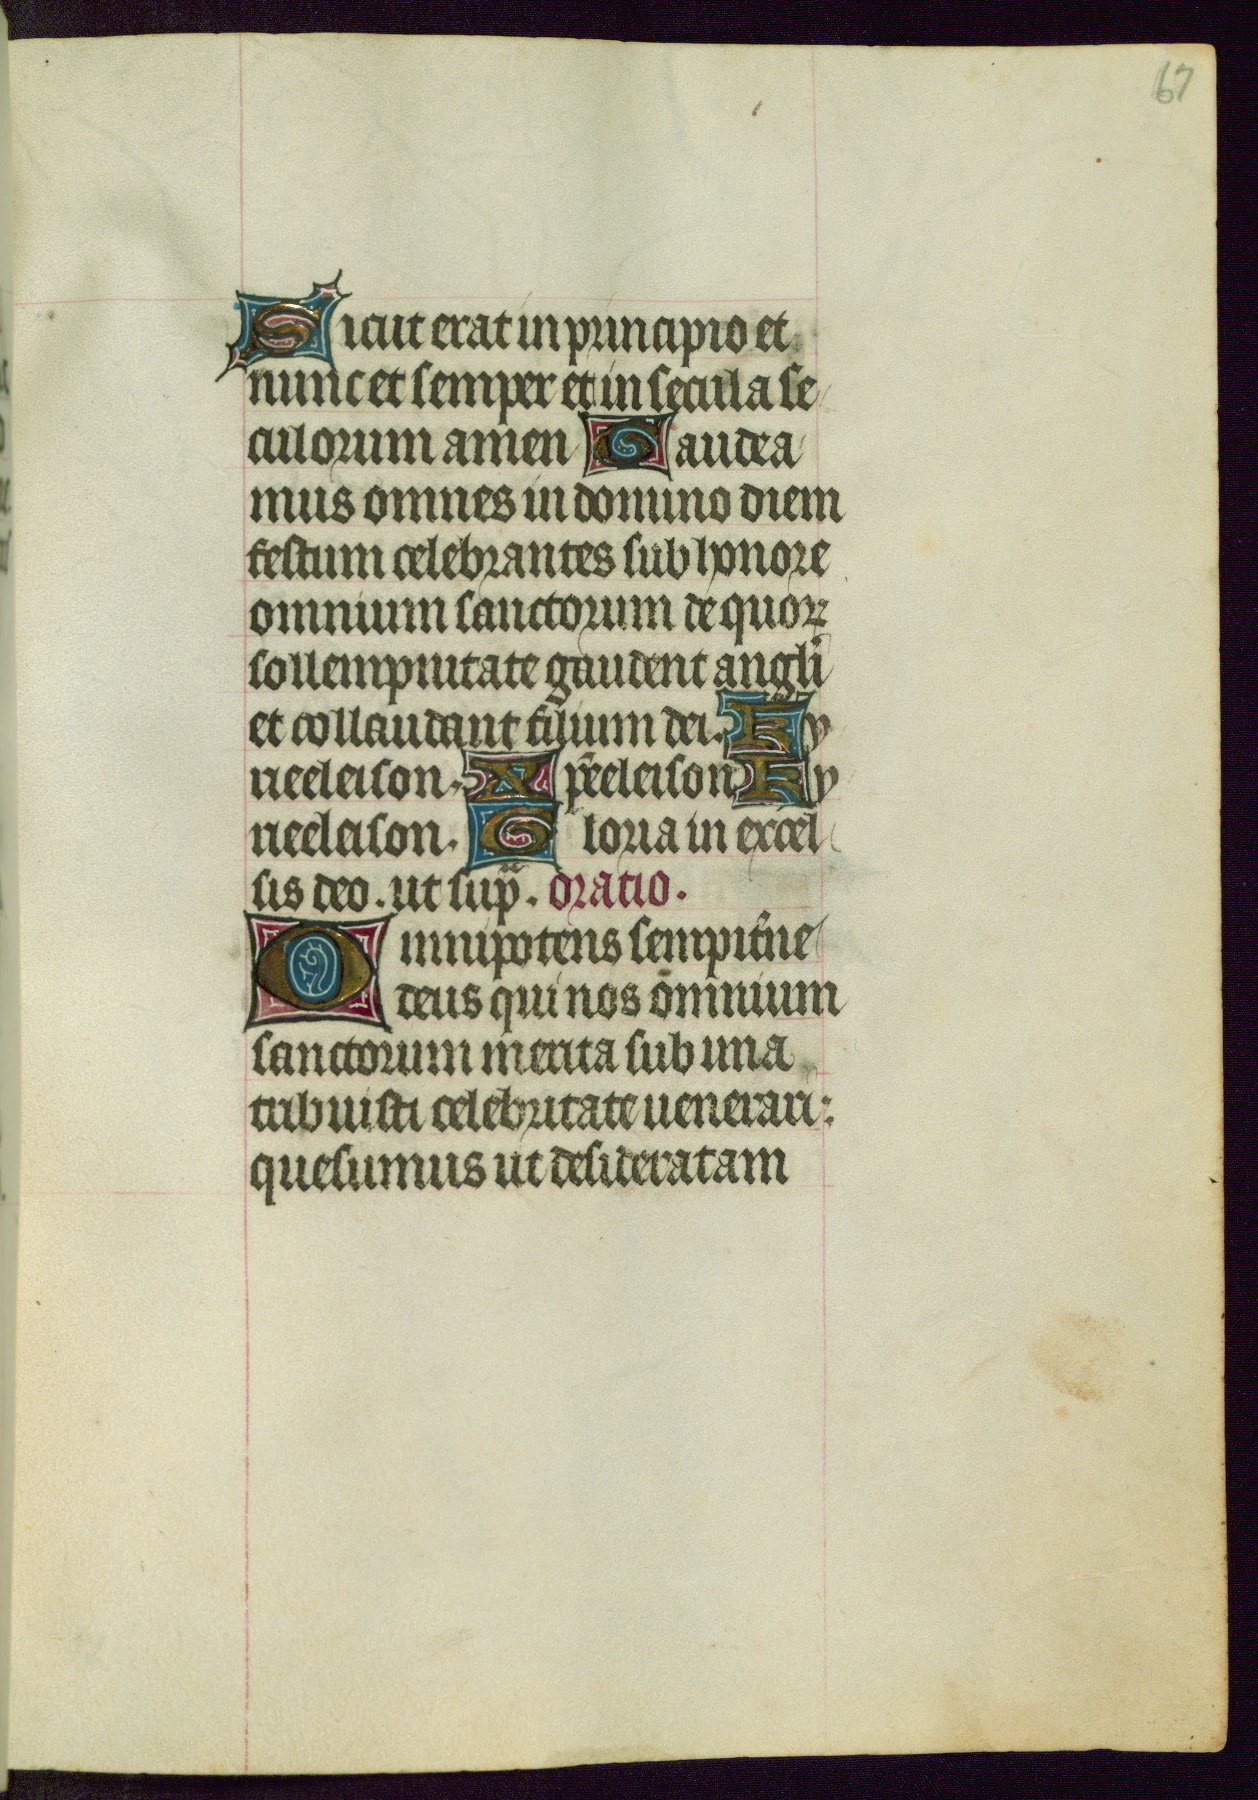 67
Sicut erat in principio et
nunc et semper et in secula se
culorum amen Gaudea
mus omnes in domino diem
festum celebrantes sub honore
omnium sanctorum de quoꝝ
sollempnitate gaudent angli̅
et collaudant filium dei. Ky
rieeleison. Xp̅eeleison Ky
rieeleison. Gloria in excel
sis deo. ut sup̅. oratio.
Omnipotens sempit̅ne
deus qui nos om̅nium
sanctorum merita sub una
tribuisti celebritate uenerari:
quesumus ut desideratam